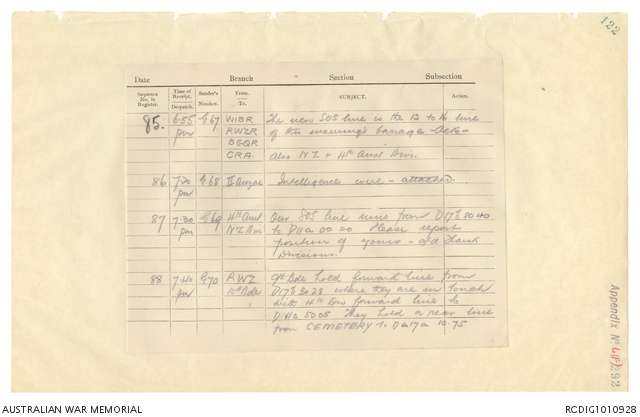 122
Date Branch Section Subsection
Sequence No. in Register. Time of Receipt. Despatch. Sender's Number. From. To. SUBJECT. Action.
85. 6.55 pm G67 WIBR The new SOS line is the 12 to line
RWZR of this morning's barrage
DEQR
CRA. Also N.Z. + 4th Aust Divn.
86 7.20 pm G68 II Anzac Intelligence attached.
87 7.30 pm G69 4th Aust Our SOS line runs from D17b 80.40
N.Z. Div to D11a 00.20 Please report
position of yours - Aust
Divisions.
88. 7.40 pm G70 RWZ 9th Bde hold forward line from
Bde D17b 30.28 where they are in touch
with 4th Div forward line to
D11c 50.05 They hold a rear line
from CEMETERY to D17a 10.75
Appendix No 6(F) 292
AUSTRALIAN WAR MEMORIAL RCDIG1010928